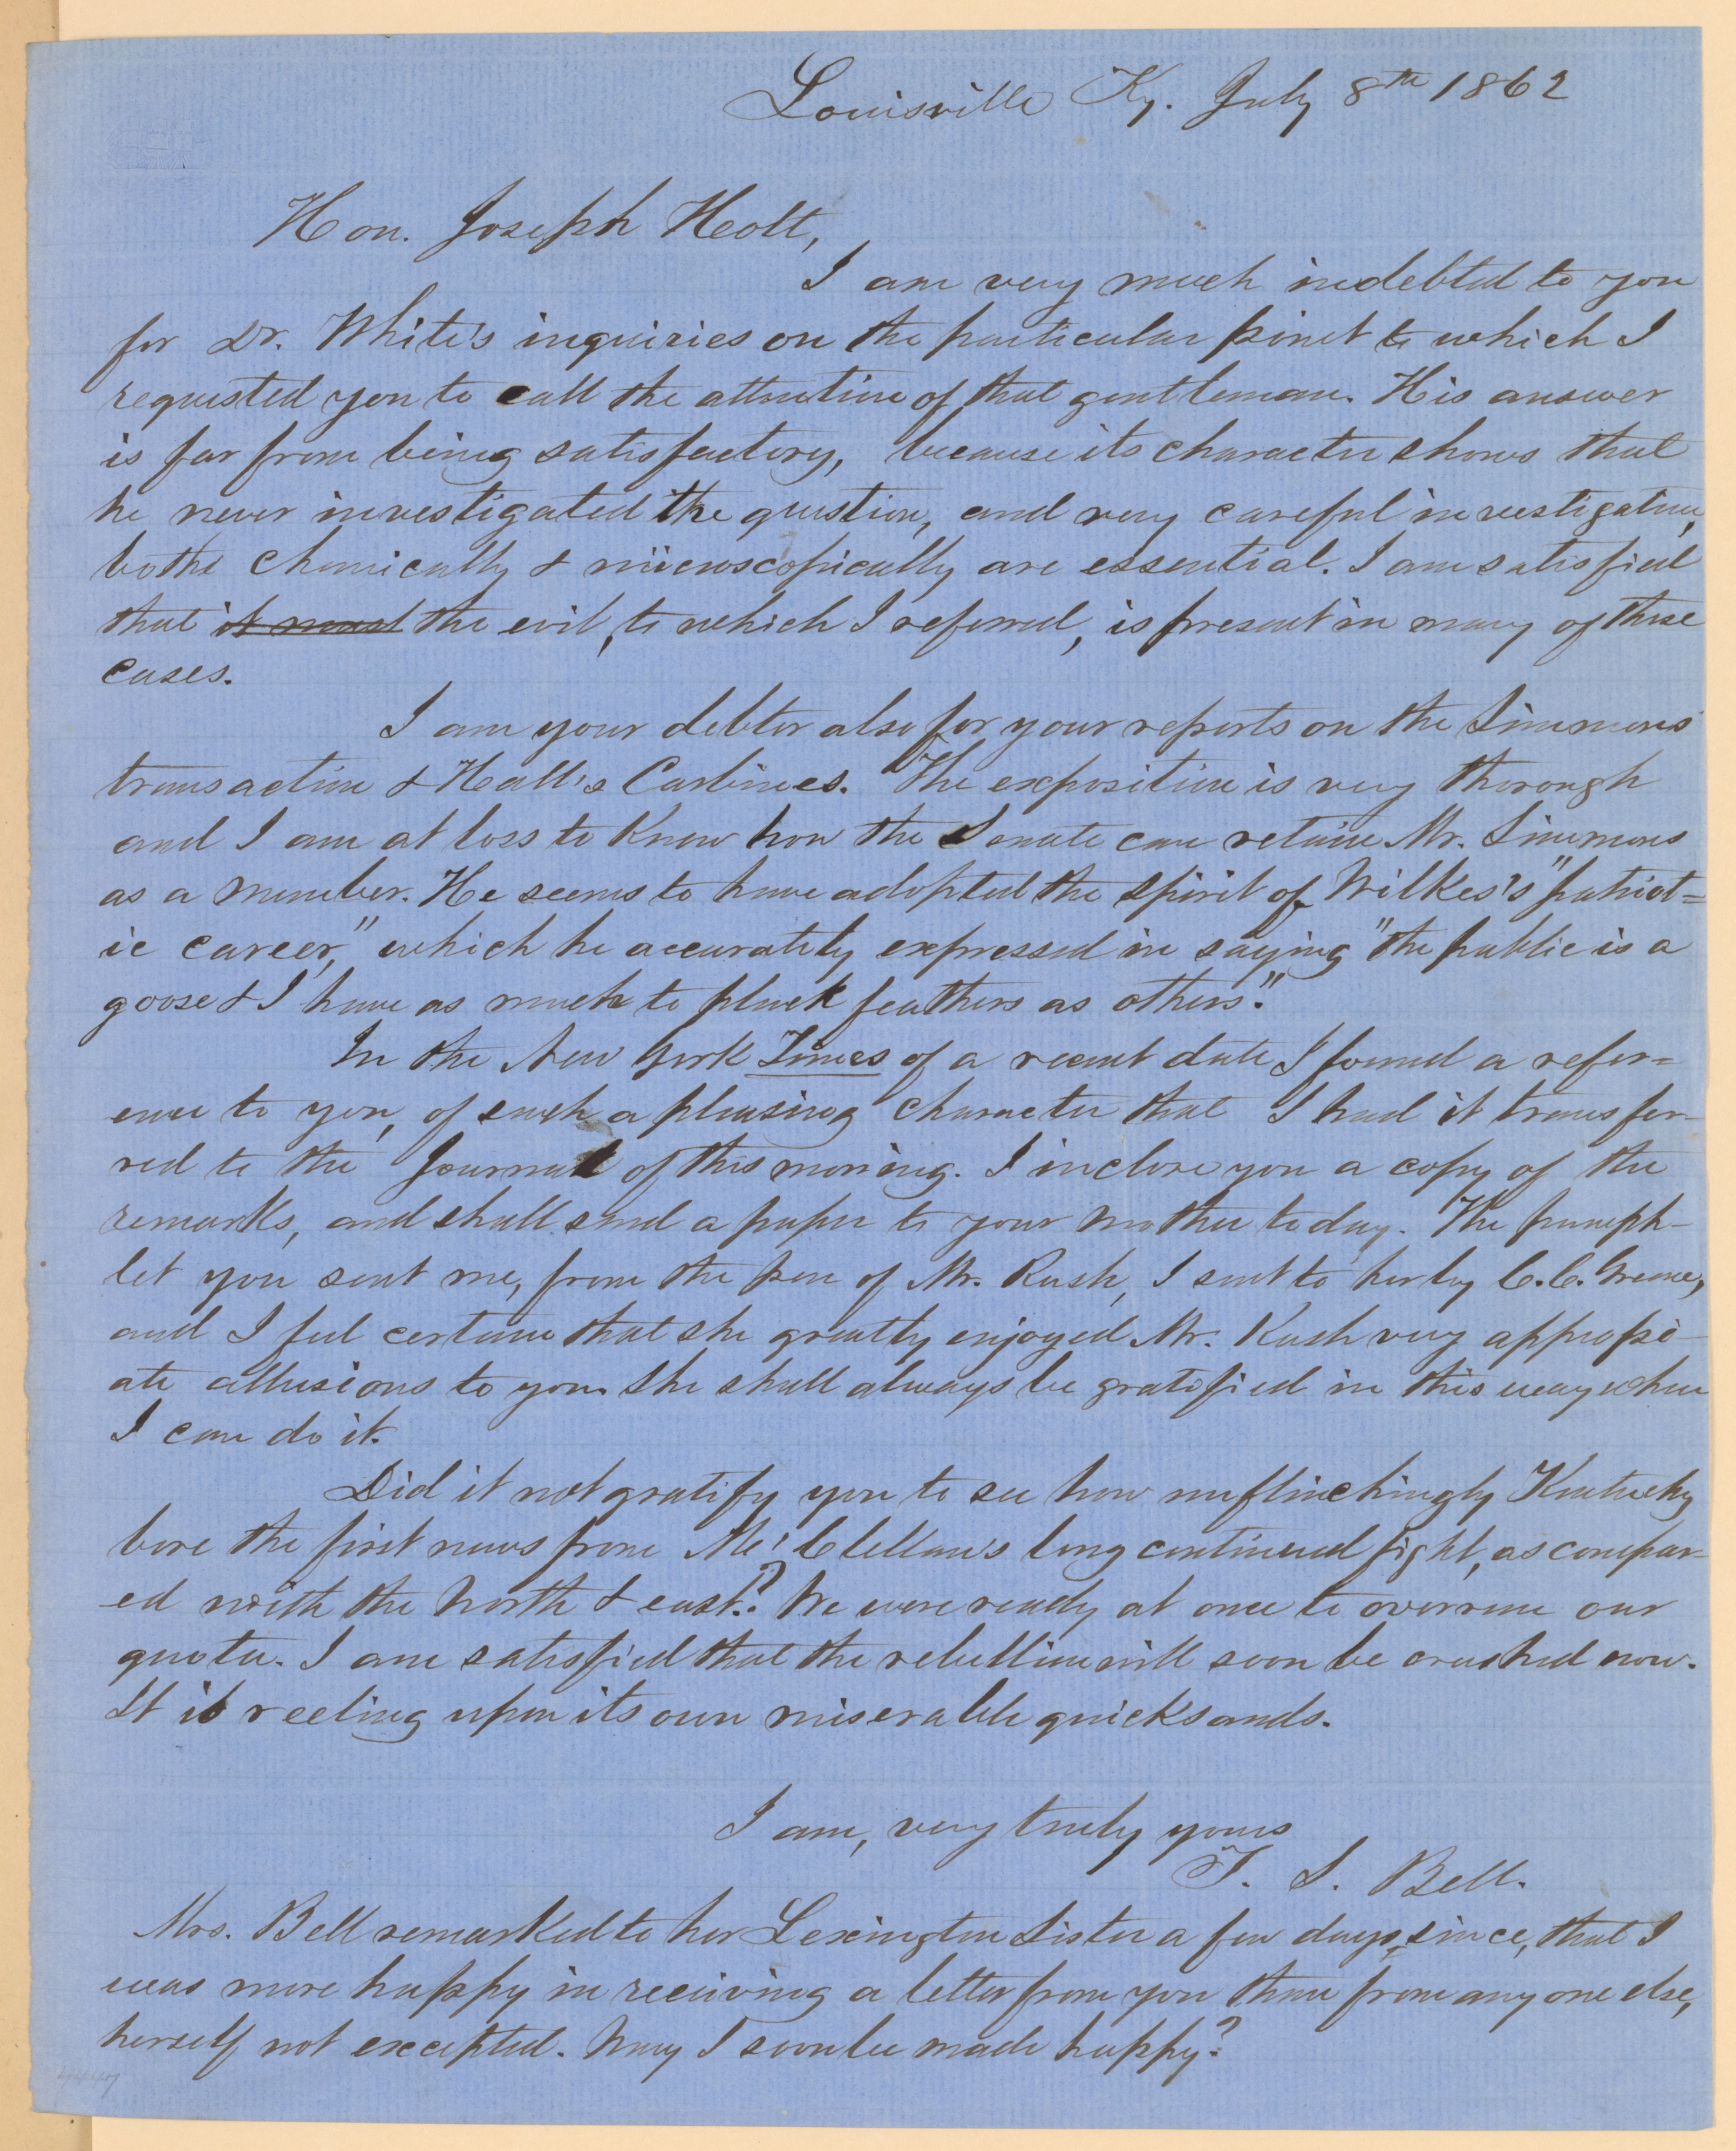 Louisville Ky. July 8th 1862
Hon. Joseph Holt,
I am very much indebted to you
for Dr. White's inquiries on the particular point to which I
requested you to call the attention of that gentleman. His answer
is far from being satisfactory, because its character shows that
he never investigated the question, and very careful investigation,
both chemically & microscopically are essential. I am satisfied
that it must the evil, to which I referred, is present in many of these
cases.
I am your debtor also for your reports on the Simmons
transaction & Hall's Carbines. The exposition is very thorough
and I am at loss to know how the Senate can retain Mr. Simmons
as a member. He seems to have adopted the spirit of Wilkes's "patriot=
ic career," which he accurately expressed in saying "the public is a
goose & I have as much to pluck feathers as others".
In the New York Times of a recent date I found a refer=
ence to you, of such a pleasing character that I had it transfer-
red to the Journal of this morning. I inclose you a copy of the
remarks, and shall send a paper to your mother today. The pamph-
let you sent me, from the pen of Mr. Rush, I sent to her by C. C. Greene,
and I feel certain that she greatly enjoyed Mr. Rush very appropri-
ate allusions to you. She shall always be gratified in this way when
I can do it.
Did it not gratify you to see how unflinchingly Kentucky
bore the first news from McClellan's long continued fight, as compar-
ed with the North & east? We were ready at once to overrun our
quota. I am satisfied that the rebellion will soon be crushed now.
It is reeling upon its own miserable quicksands.
I am, very truly yours
T. S. Bell.
Mrs. Bell remarked to her Lexington Sister a few days, since, that I
was more happy in receiving a letter from you than from any one else,
herself not excepted. May I soon be made happy?